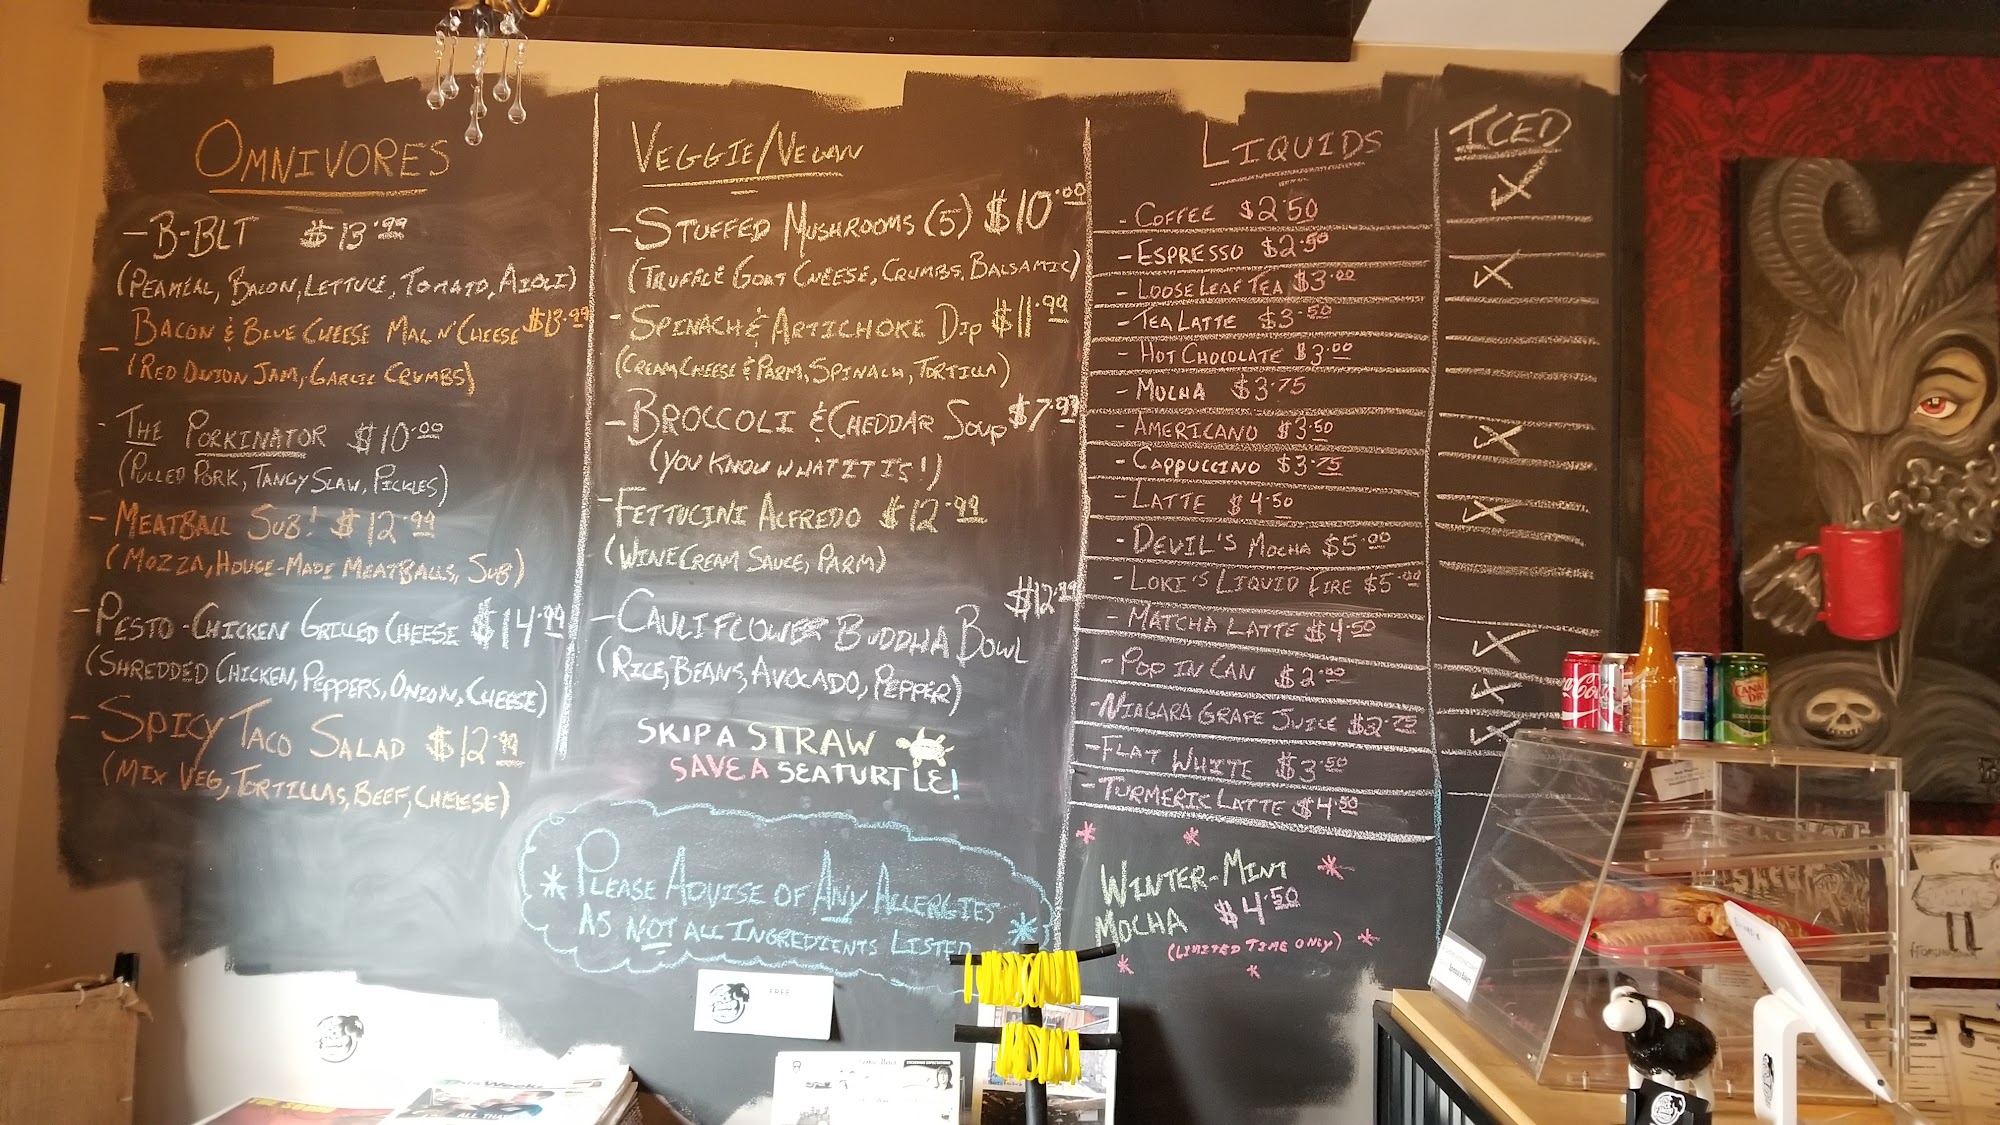 OMNIVORES
- B-BLT $13.99
(PEAMEAL, BACON, LETTUCE, TOMATO, AIOLI)
- BACON & BLUE CHEESE MAC N' CHEESE $13.99
(RED ONION JAM, GARLIC CRUMBS)
- THE PORKINATOR $10.00
(PULLED PORK, TANGY SLAW, PICKLES)
- MEATBALL SUB! $12.99
(MOZZA, HOUSE-MADE MEATBALLS, SUB)
- PESTO-CHICKEN GRILLED CHEESE $14.99
(SHREDDED CHICKEN, PEPPERS, ONION, CHEESE)
- SPICY TACO SALAD $12.99
(MIX VEG, TORTILLAS, BEEF, CHEESE)
VEGGIE/VEGAN
- STUFFED MUSHROOMS (5) $10.00
(TRUFFLE GOAT CHEESE, CRUMBS, BALSAMIC)
- SPINACH & ARTICHOKE DIP $11.99
(CREAM CHEESE & PARM, SPINACH, TORTILLA)
- BROCCOLI & CHEDDAR SOUP $7.99
(YOU KNOW WHAT IT IS!)
- FETTUCINI ALFREDO $12.99
(WINE CREAM SAUCE, PARM)
- CAULIFLOWER BUDDHA BOWL $12.99
(RICE, BEANS, AVOCADO, PEPPER)
SKIP A STRAW
SAVE A SEATURTLE!
* PLEASE ADVISE OF ANY ALLERGIES
AS NOT ALL INGREDIENTS LISTED *
LIQUIDS
- COFFEE $2.50
- ESPRESSO $2.50
- LOOSE LEAF TEA $3.00
- TEA LATTE $3.50
- HOT CHOCOLATE $3.00
- MOCHA $3.75
- AMERICANO $3.50
- CAPPUCCINO $3.75
- LATTE $4.50
- DEVIL'S MOCHA $5.00
- LOKI'S LIQUID FIRE $5.00
- MATCHA LATTE $4.50
- POP IN CAN $2.00
- NIAGARA GRAPE JUICE $2.75
- FLAT WHITE $3.50
- TURMERIC LATTE $4.50
WINTER-MINT
MOCHA $4.50
(LIMITED TIME ONLY)
ICED
Coca-Cola
CANADA DRY
FREE
This Week